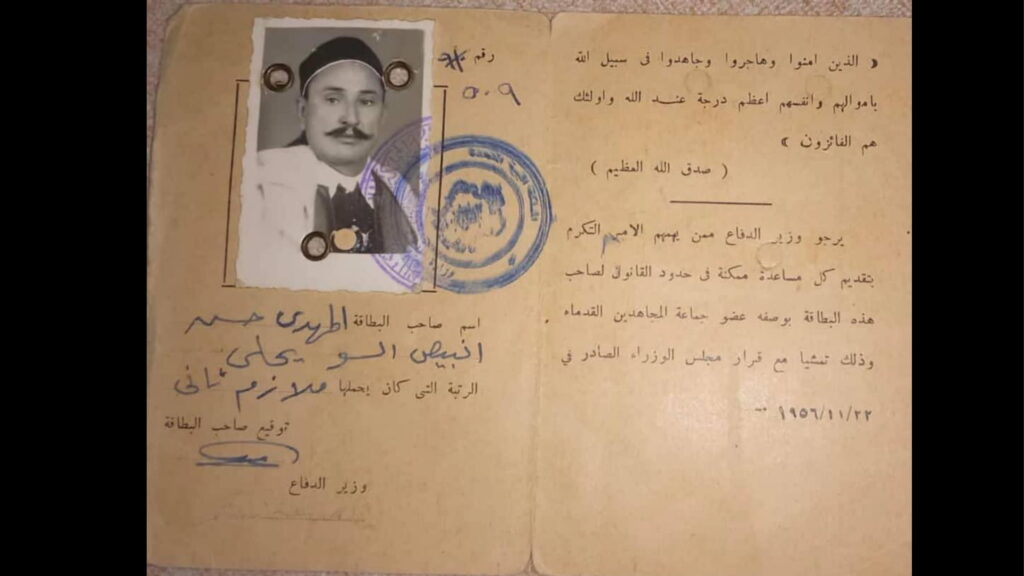 ﴿ الذين امنوا وهاجروا وجاهدوا فى سبيل الله
باموالهم وانفسهم اعظم درجة عنـد الله واولئك
هم الفائزون ﴾
( صدق الله العظيم )
يرجو وزير الدفاع ممن يهمهم الامر التكرم
بتقديم كل مساعدة ممكنة فى حدود القانون لصاحب
هذه البطاقة بوصفه عضو جماعة المجاهدين القدماء
وذلك تمشيا مع قرار مجلس الوزراء الصادر في
١٩٥٦/١١/٢٢ --
رقم
٥٠٩
المملكة الليبية المتحدة
اسم صاحب البطاقة المهدى حسن
السويحلى
الرتبة التى كان يحملها ملازم ثانى
توقيع صاحب البطاقة
وزير الدفاع